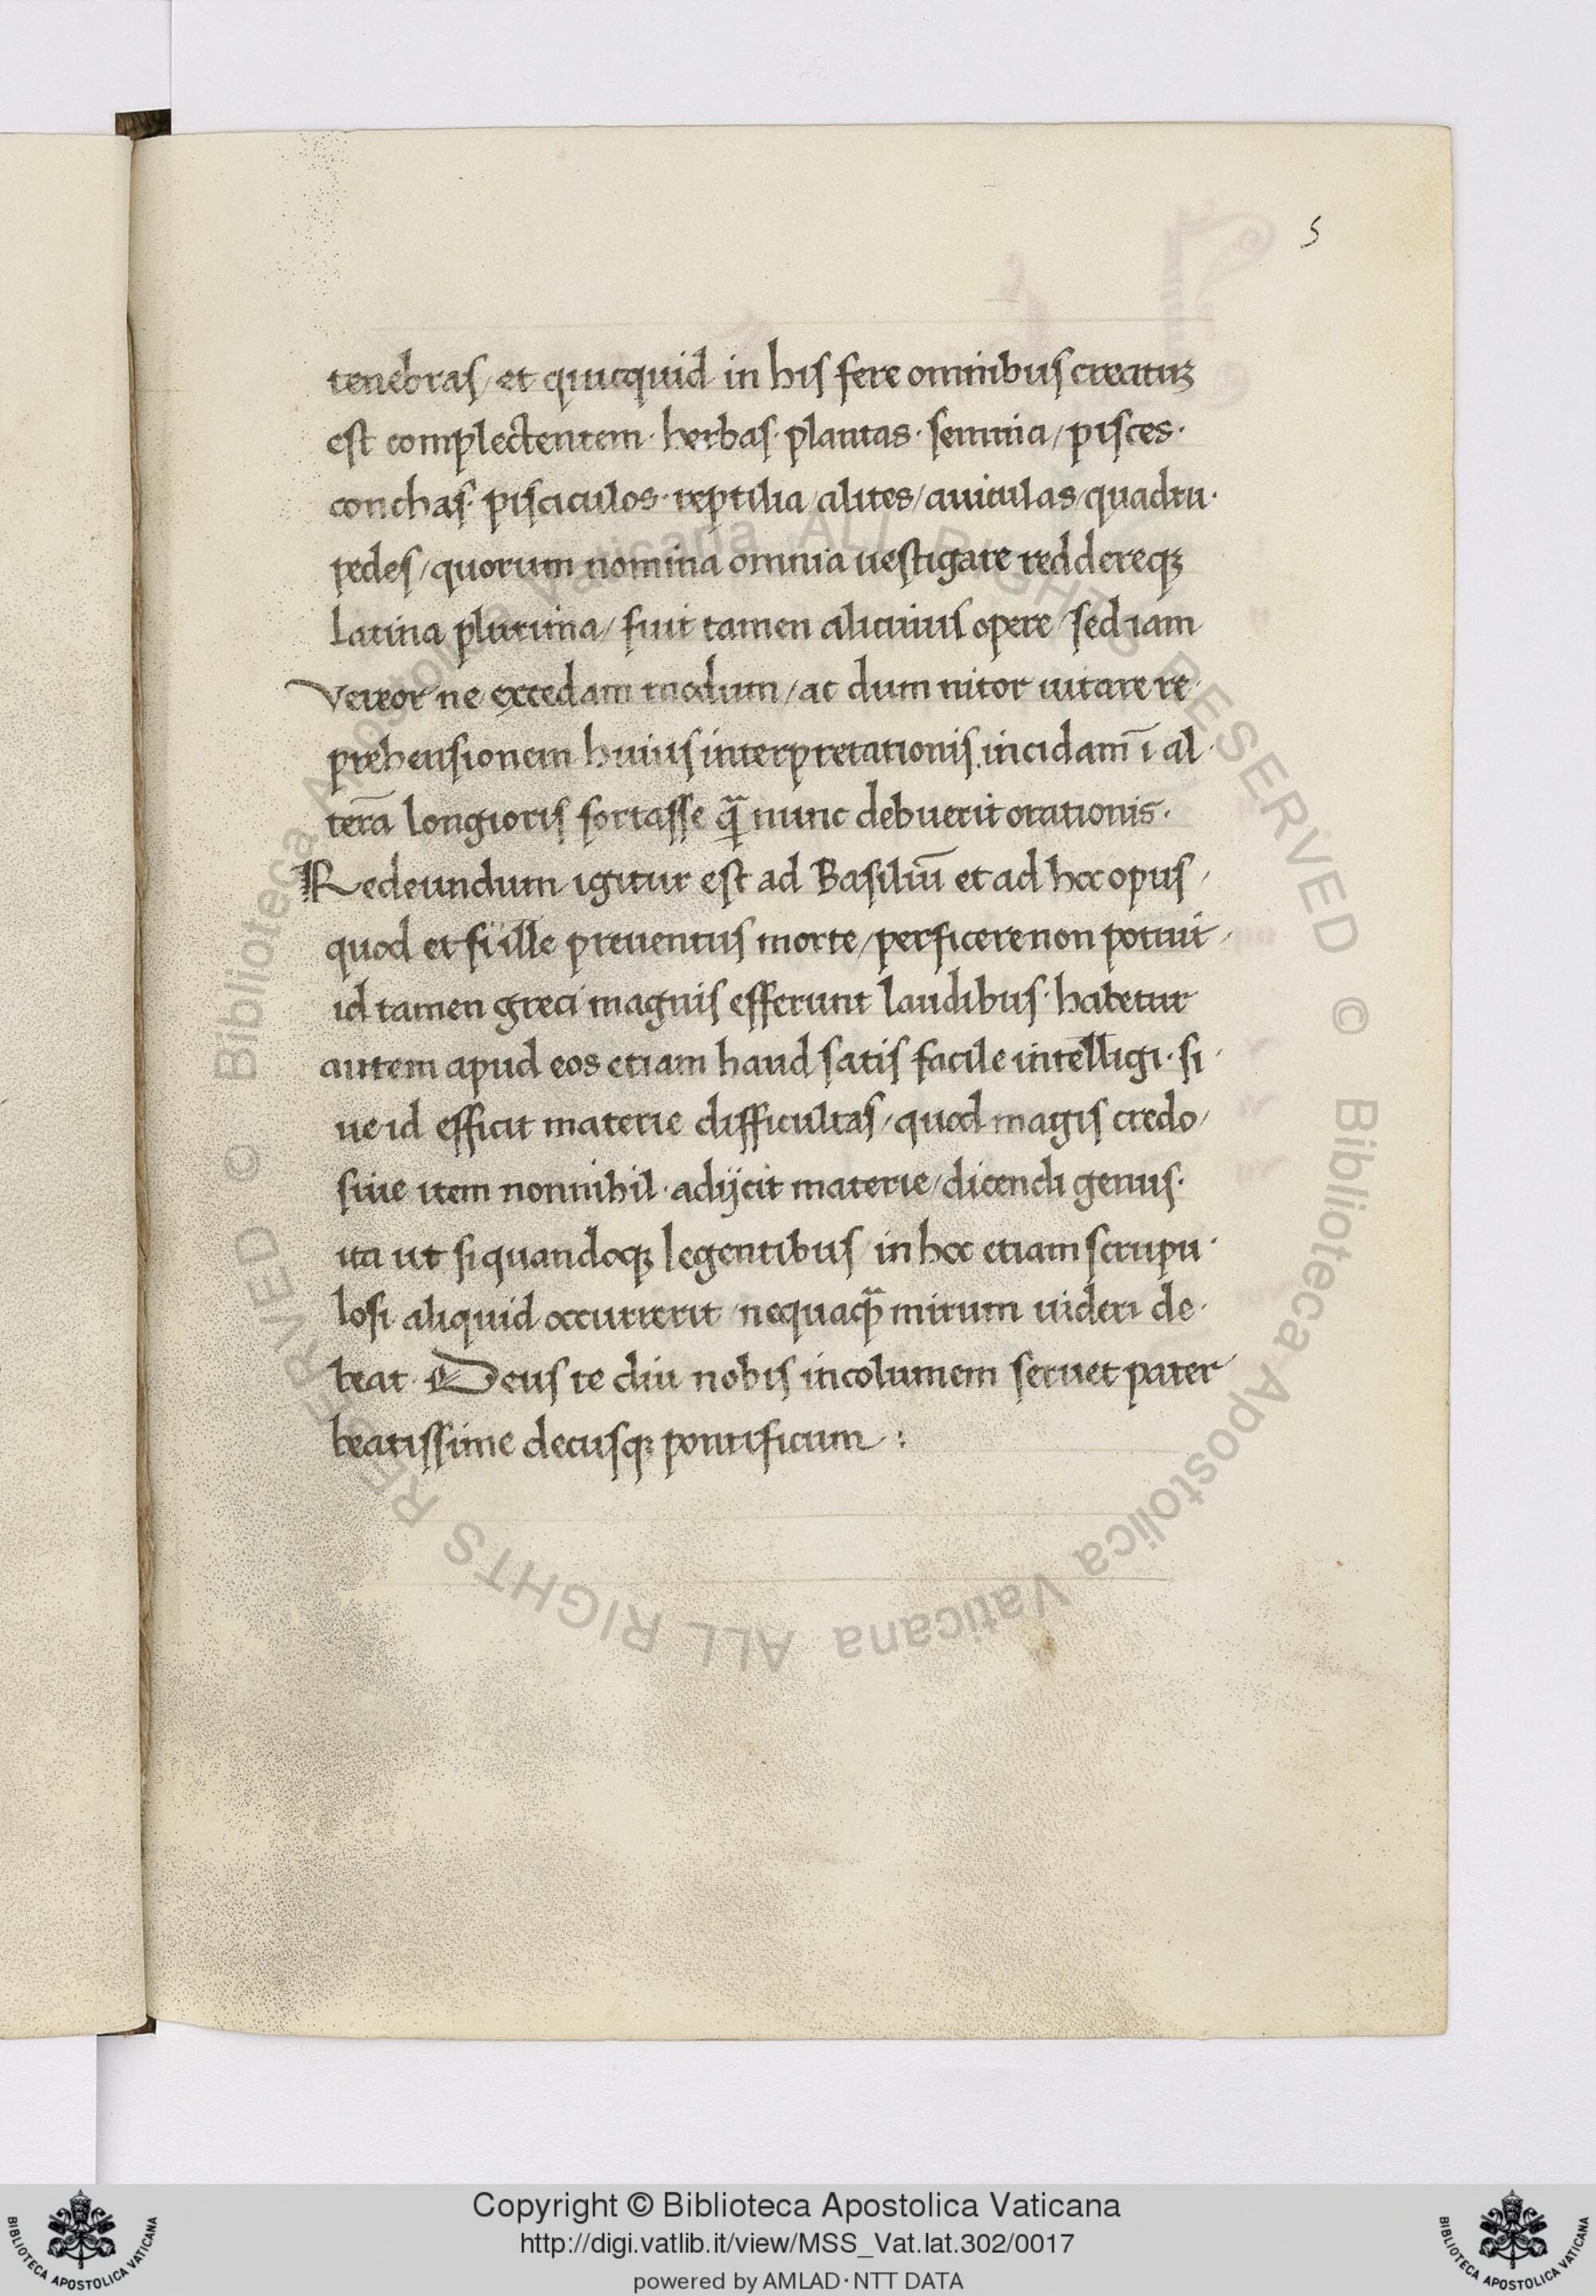 5
tenebras/ et quicquid in his fere omnibus creatuꝫ
est complectentem· herbas· plantas· semina/ pisces·
conchas· pisciculos· reptilia/ alites/ auiculas/ quadru·
pedes/ quorum nomina omnia uestigare reddereqꝫ
latina plurima/ fuit tamen alicuius opere/ sed iam
vereor ne excedam modum/ ac dum nitor uitare re·
prehensionem huius interpretationis, incidam ī al·
terā longioris fortasse qᷓ nunc debuerit orationis·
Redeundum igitur est ad Basiliū et ad hoc opus/
quod etsi ille preuentus morte/ perficere non potuit/
id tamen greci magnis efferunt laudibus· habetur
autem apud eos etiam haud satis facile intelligi· si·
ue id efficit materie difficultas/ quod magis credo/
siue item nonnihil· adijcit materie/ dicendi genus·
ita ut si quandoqꝫ legentibus/ in hoc etiam scrupu·
losi aliquid occurrerit/ nequaqᷓ mirum uideri de·
beat· Deus te diu nobis incolumem seruet pater
beatissime decusqꝫ pontificum :
© Biblioteca Apostolica Vaticana ALL RIGHTS RESERVED © Biblioteca Apostolica Vaticana ALL RIGHTS RESERVED
Copyright © Biblioteca Apostolica Vaticana
http://digi.vatlib.it/view/MSS_Vat.lat.302/0017
powered by AMLAD·NTT DATA
BIBLIOTECA APOSTOLICA VATICANA
BIBLIOTECA APOSTOLICA VATICANA